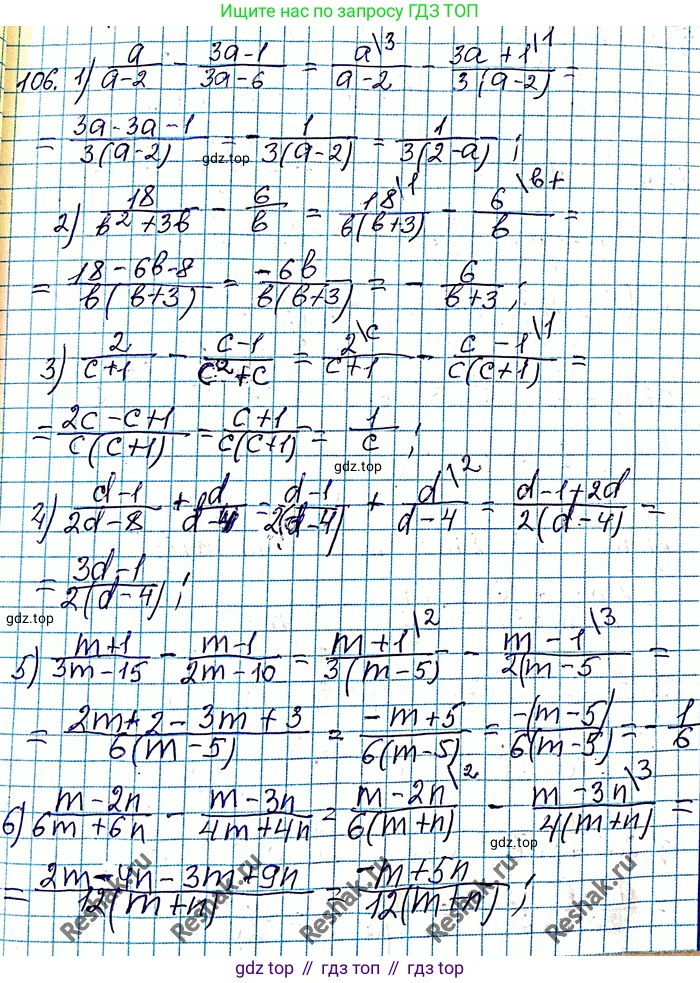 Ищите нас по запросу ГДЗ ТОП
106. 1) a/(a-2) - (3a-1)/(3a-6) = a\3/(a-2) - (3a+1\1)/(3(a-2)) =
= (3a-3a-1)/(3(a-2)) = -1/(3(a-2)) = 1/(3(2-a)) ;
gdz.top
2) 18/(b²+3b) - 6/b = 18\1/(b(b+3)) - 6\b+/b =
= (18-6b-8)/(b(b+3)) = -6b/(b(b+3)) = - 6/(b+3) ;
3) 2/(c+1) - (c-1)/(c²+c) = 2\c/(c+1) - (c-1\1)/(c(c+1)) =
= (2c-c+1)/(c(c+1)) = (c+1)/(c(c+1)) = 1/c ;
gdz.top
4) (d-1)/(2d-8) + d/(d-4) = (d-1)/(2(d-4)) + d\2/(d-4) = (d-1+2d)/(2(d-4)) =
= (3d-1)/(2(d-4)) ;
gdz.top
5) (m+1)/(3m-15) - (m-1)/(2m-10) = (m+1\2)/(3(m-5)) - (m-1\3)/(2(m-5) =
= (2m+2-3m+3)/(6(m-5)) = (-m+5)/(6(m-5)) = -(m-5)/(6(m-5)) = - 1/6
6) (m-2n)/(6m+6n) - (m-3n)/(4m+4n) = (m-2n\2)/(6(m+n)) - (m-3n\3)/(4(m+n)) =
= (2m-4n-3m+9n)/(12(m+n)) = (-m+5n)/(12(m+n)) ;
Reshak.ru
Reshak.ru
Reshak.ru
Reshak.ru
gdz top // гдз топ // gdz.top